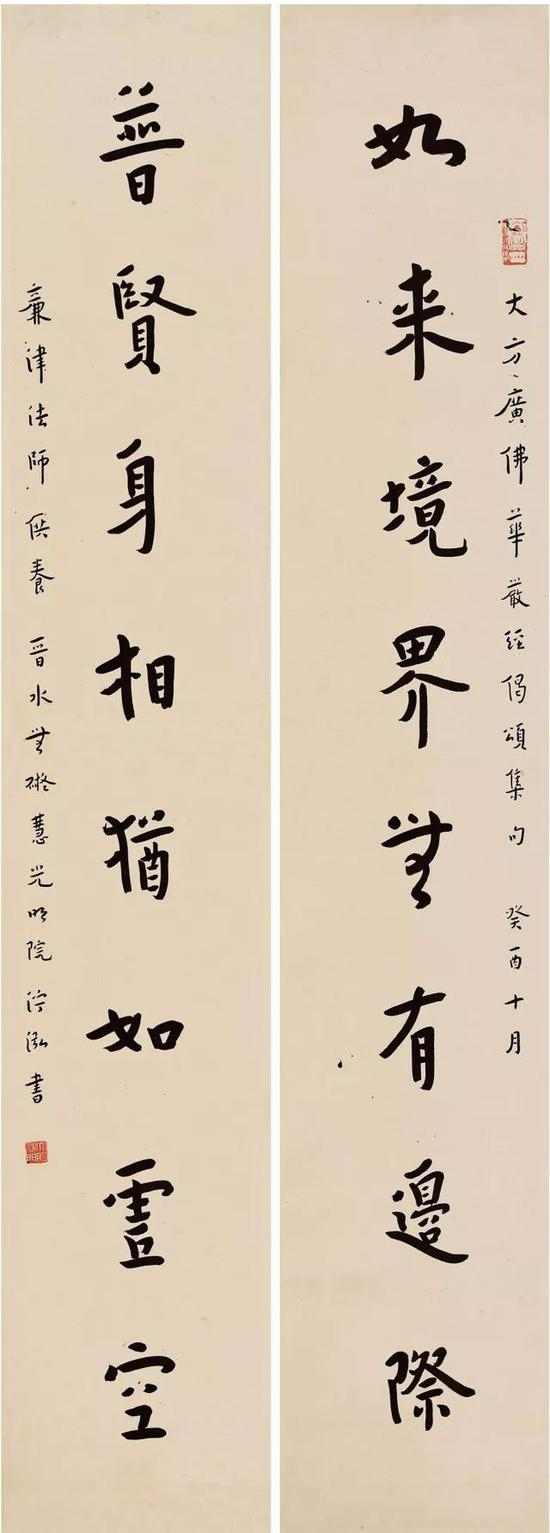 如来境界無有邊際
大方廣佛華嚴經偈頌集句 癸酉十月
普賢身相猶如虛空
律法師供養 晉水無礙慧光明院 沙泓書